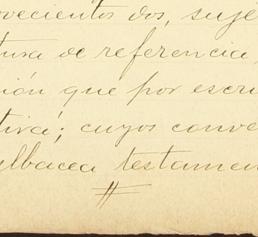 ovecientos dos, suje
tura de referencia,
ión que por escri
tiva; cuyos conve
albacea testamen